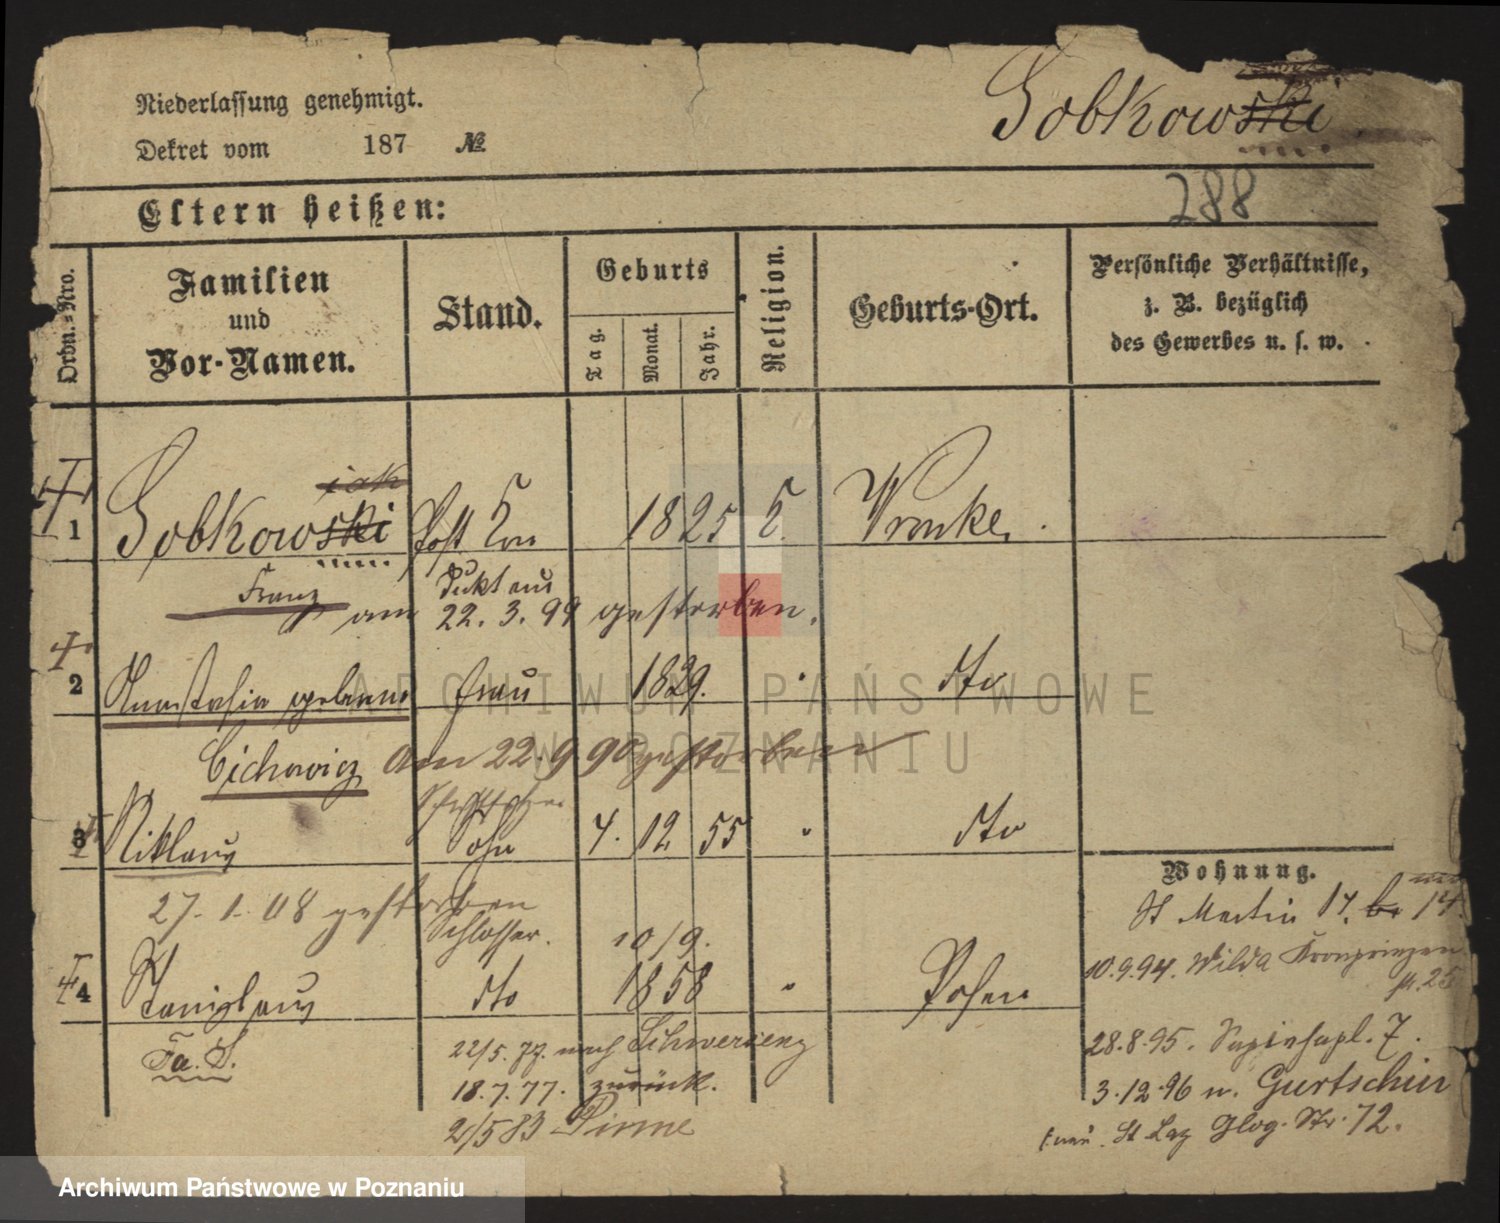 Niederlassung genehmigt.
Dekret vom 187 №
Sobkowski
288
Eltern heißen:
Ordn.-Nro.
Familien und Vor-Namen.
Stand.
Geburts
Tag.
Monat.
Jahr.
Religion.
Geburts-Ort.
Persönliche Verhältnisse,
z. B. bezüglich
des Gewerbes u. s. w.
iak
1 Sobkowski Post 1825 Wronke.
Franz
am 22. 3. 99 gestorben.
2 Anastasia geborene Frau 1829. dto
Cichowicz am 22. 9. 90 gestorben
3 Niklaus Sohn 4. 12 55 " dto
Wohnung.
27. 1. 08 gestorben
St Martin 17. 14
Schlosser. 10/9.
10.9.94. Wilda Kronprinzen
25
4 Stanislaus dto 1858 " Posen
Fa. S.
22/5. 77. nach Schwersenz
28.8.95. 7.
18.7.77. zurück.
3.12.96 n. Gurtschin
2/5 83 Pinne
St Laz Glog. Str. 72.
ARCHIWUM PAŃSTWOWE
W POZNANIU
Archiwum Państwowe w Poznaniu